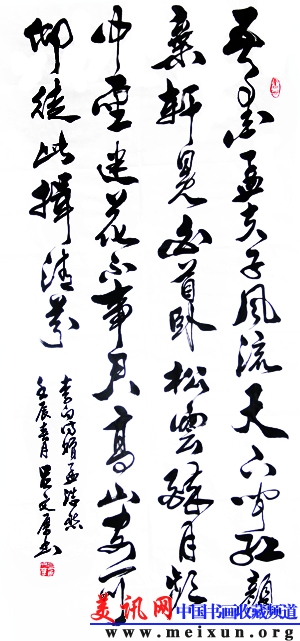 吾爱孟夫子风流天下闻红颜
棄軒冕白首卧松雲醉月频
中聖迷花不事君高山安可
仰徒此揖清芬
李白诗赠孟浩然
壬辰春月吕文书
美讯网 中国书画收藏频道
www.meixun.org